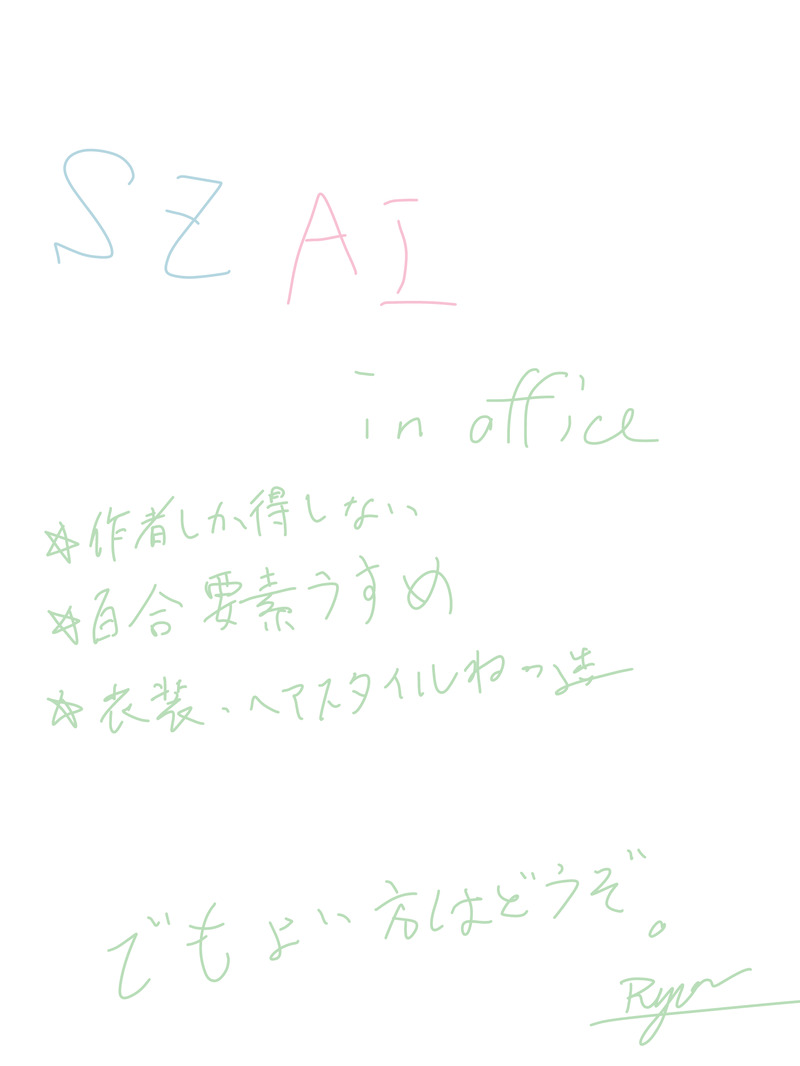 SZ AI
in office
☆作者しか得しない
☆百合要素うすめ
☆衣装・ヘアスタイルねつ造
でもよい方はどうぞ。